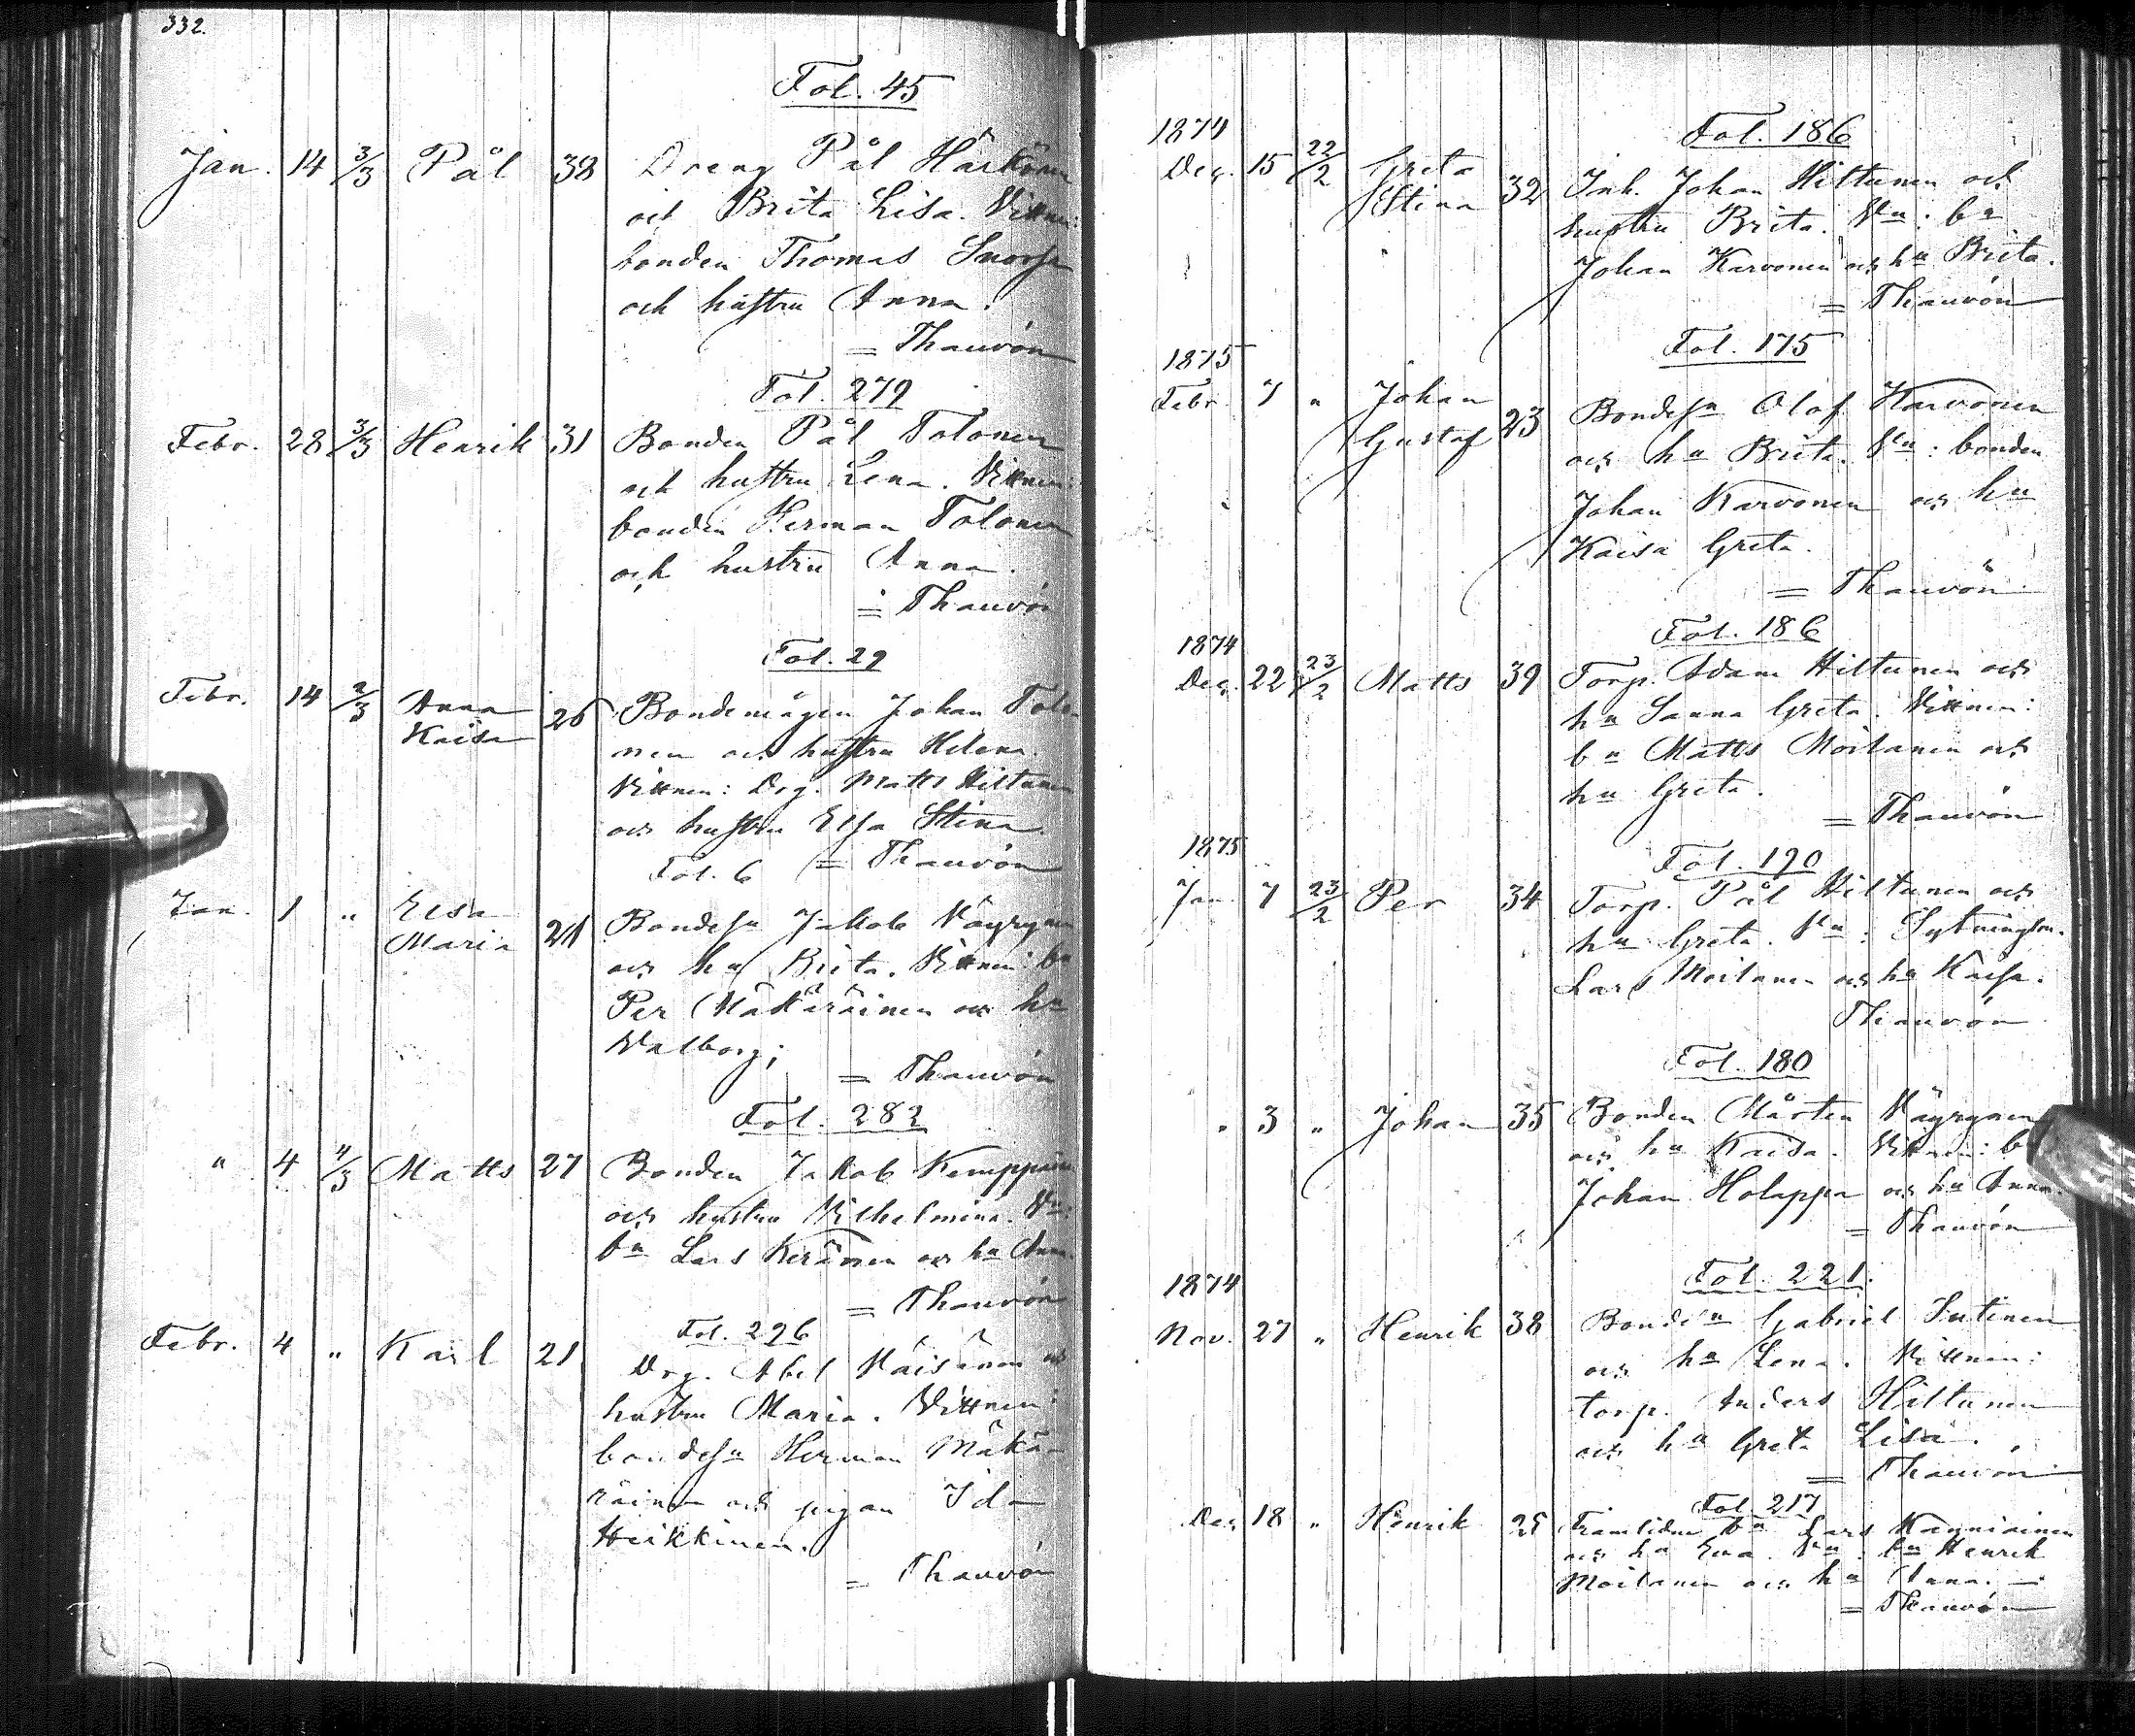 332.
Fol. 45
Jan. 14 3/3 Pål 38 Dreng Pål Härkönen
och Brita Lisa. Vittnen:
bonden Thomas
och hustru Anna.
= Thauvón
Fol. 279
Febr. 28 3/3 Henrik 31 Bonden Pål Tolonen
och hustru Lena. Vittnen:
bonden Herman Tolonen
och hustru Anna.
= Thauvón
Fol. 29
Febr. 14 2/3 Anna 26 Bondemågen Johan Tolo-
Kaisa nen och hustru Helena.
Vittnen: Drg. Matts Hiltunen
och hustru Elsa Stina.
Fol. 6 = Thauvón
Jan. 1 " Elsa Bondesn Jakob Väyrynen
Maria 21 och hu Brita. Vittnen: bn
Per Mäkäräinen och hu
Walborg;
= Thauvón
Fol. 282
" 4 4/3 Matts 27 Bonden Jakob Kemppainen
och hustru Vilhelmina. Vn:
bn Lars Keränen och hu Anna.
= Thauvón
Fol. 226
Febr. 4 " Karl 21 Drg. Abel Väisänen och
hustru Maria. Vittnen:
bondesn Herman Mäkä-
räinen och pigan Ida
Heikkinen.
= Thauvón
1874 Fol. 186
Dec. 15 22/2 Greta Inh. Johan Hiltunen och
Stina 32 hustru Brita. Vn: bn
Johan Karvonen och hu Brita.
= Thauvón
1875 Fol. 175
Febr. 7 " Johan Bondesn Olof Karvonen
Gustaf 23 och hu Brita. Vn: bonden
Johan Karvonen och hu
Kaisa Greta.
= Thauvón
1874 Fol. 186
Dec. 22 23/2 Matts 39 Torp. Adam Hiltunen och
hu Sanna Greta. Vittnen:
bn Matts Moilanen och
hu Greta.
= Thauvón
1875 Fol. 190
Jan. 7 23/2 Per 34 Torp. Pål Hiltunen och
hu Greta. Vn: Sytningsm.
Lars Moilanen och hu Kaisa.
Thauvón
Fol. 180
" 3 " Johan 35 Bonden Mårten Väyrynen
och hu Kaisa. Vittnen: b
Johan Holappa och hu Anna.
= Thauvón
1874 Fol. 221.
Nov. 27 " Henrik 38 Bondesn Gabriel Sutinen
och hu Lena. Vittnen:
torp. Anders Hiltunen
och hu Greta Lisa.
= Thauvón
Fol. 217
Dec. 18 " Henrik 25 Framlidne bn Lars
och hu Eva. Vn: bn Henrik
Moilanen och hu Anna. —
= Thauvón